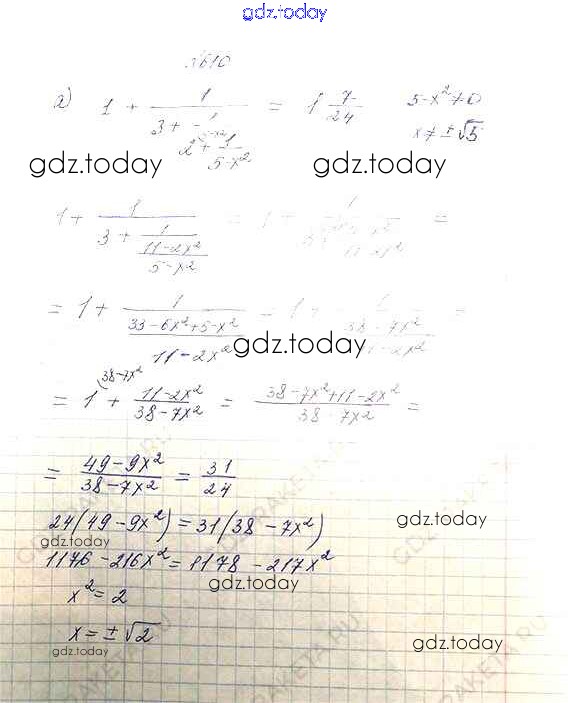 gdz.today
№610
а) 1 + 1/(3 + 1/(2 + 1/(5-x²))) = 1 7/24 5-x² ≠ 0
x ≠ ±√5
gdz.today gdz.today
1 + 1/(3 + 1/((11-2x²)/(5-x²))) = 1 + =
= 1 + 1/((33-6x²+5-x²)/(11-2x²)) = 1 + 1/((38-7x²)/(11-2x²)) =
gdz.today
= 1 (38-7x² + (11-2x²)/(38-7x²) = (38-7x²+11-2x²)/(38-7x²) =
= (49-9x²)/(38-7x²) = 31/24
24(49-9x²) = 31(38-7x²)
gdz.today
1176 - 216x² = 1178 - 217x²
gdz.today
x² = 2
x = ±√2
gdz.today gdz.today